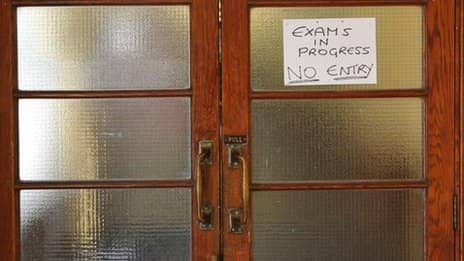 EXAM'S
IN
PROGRESS
NO ENTRY
PULL